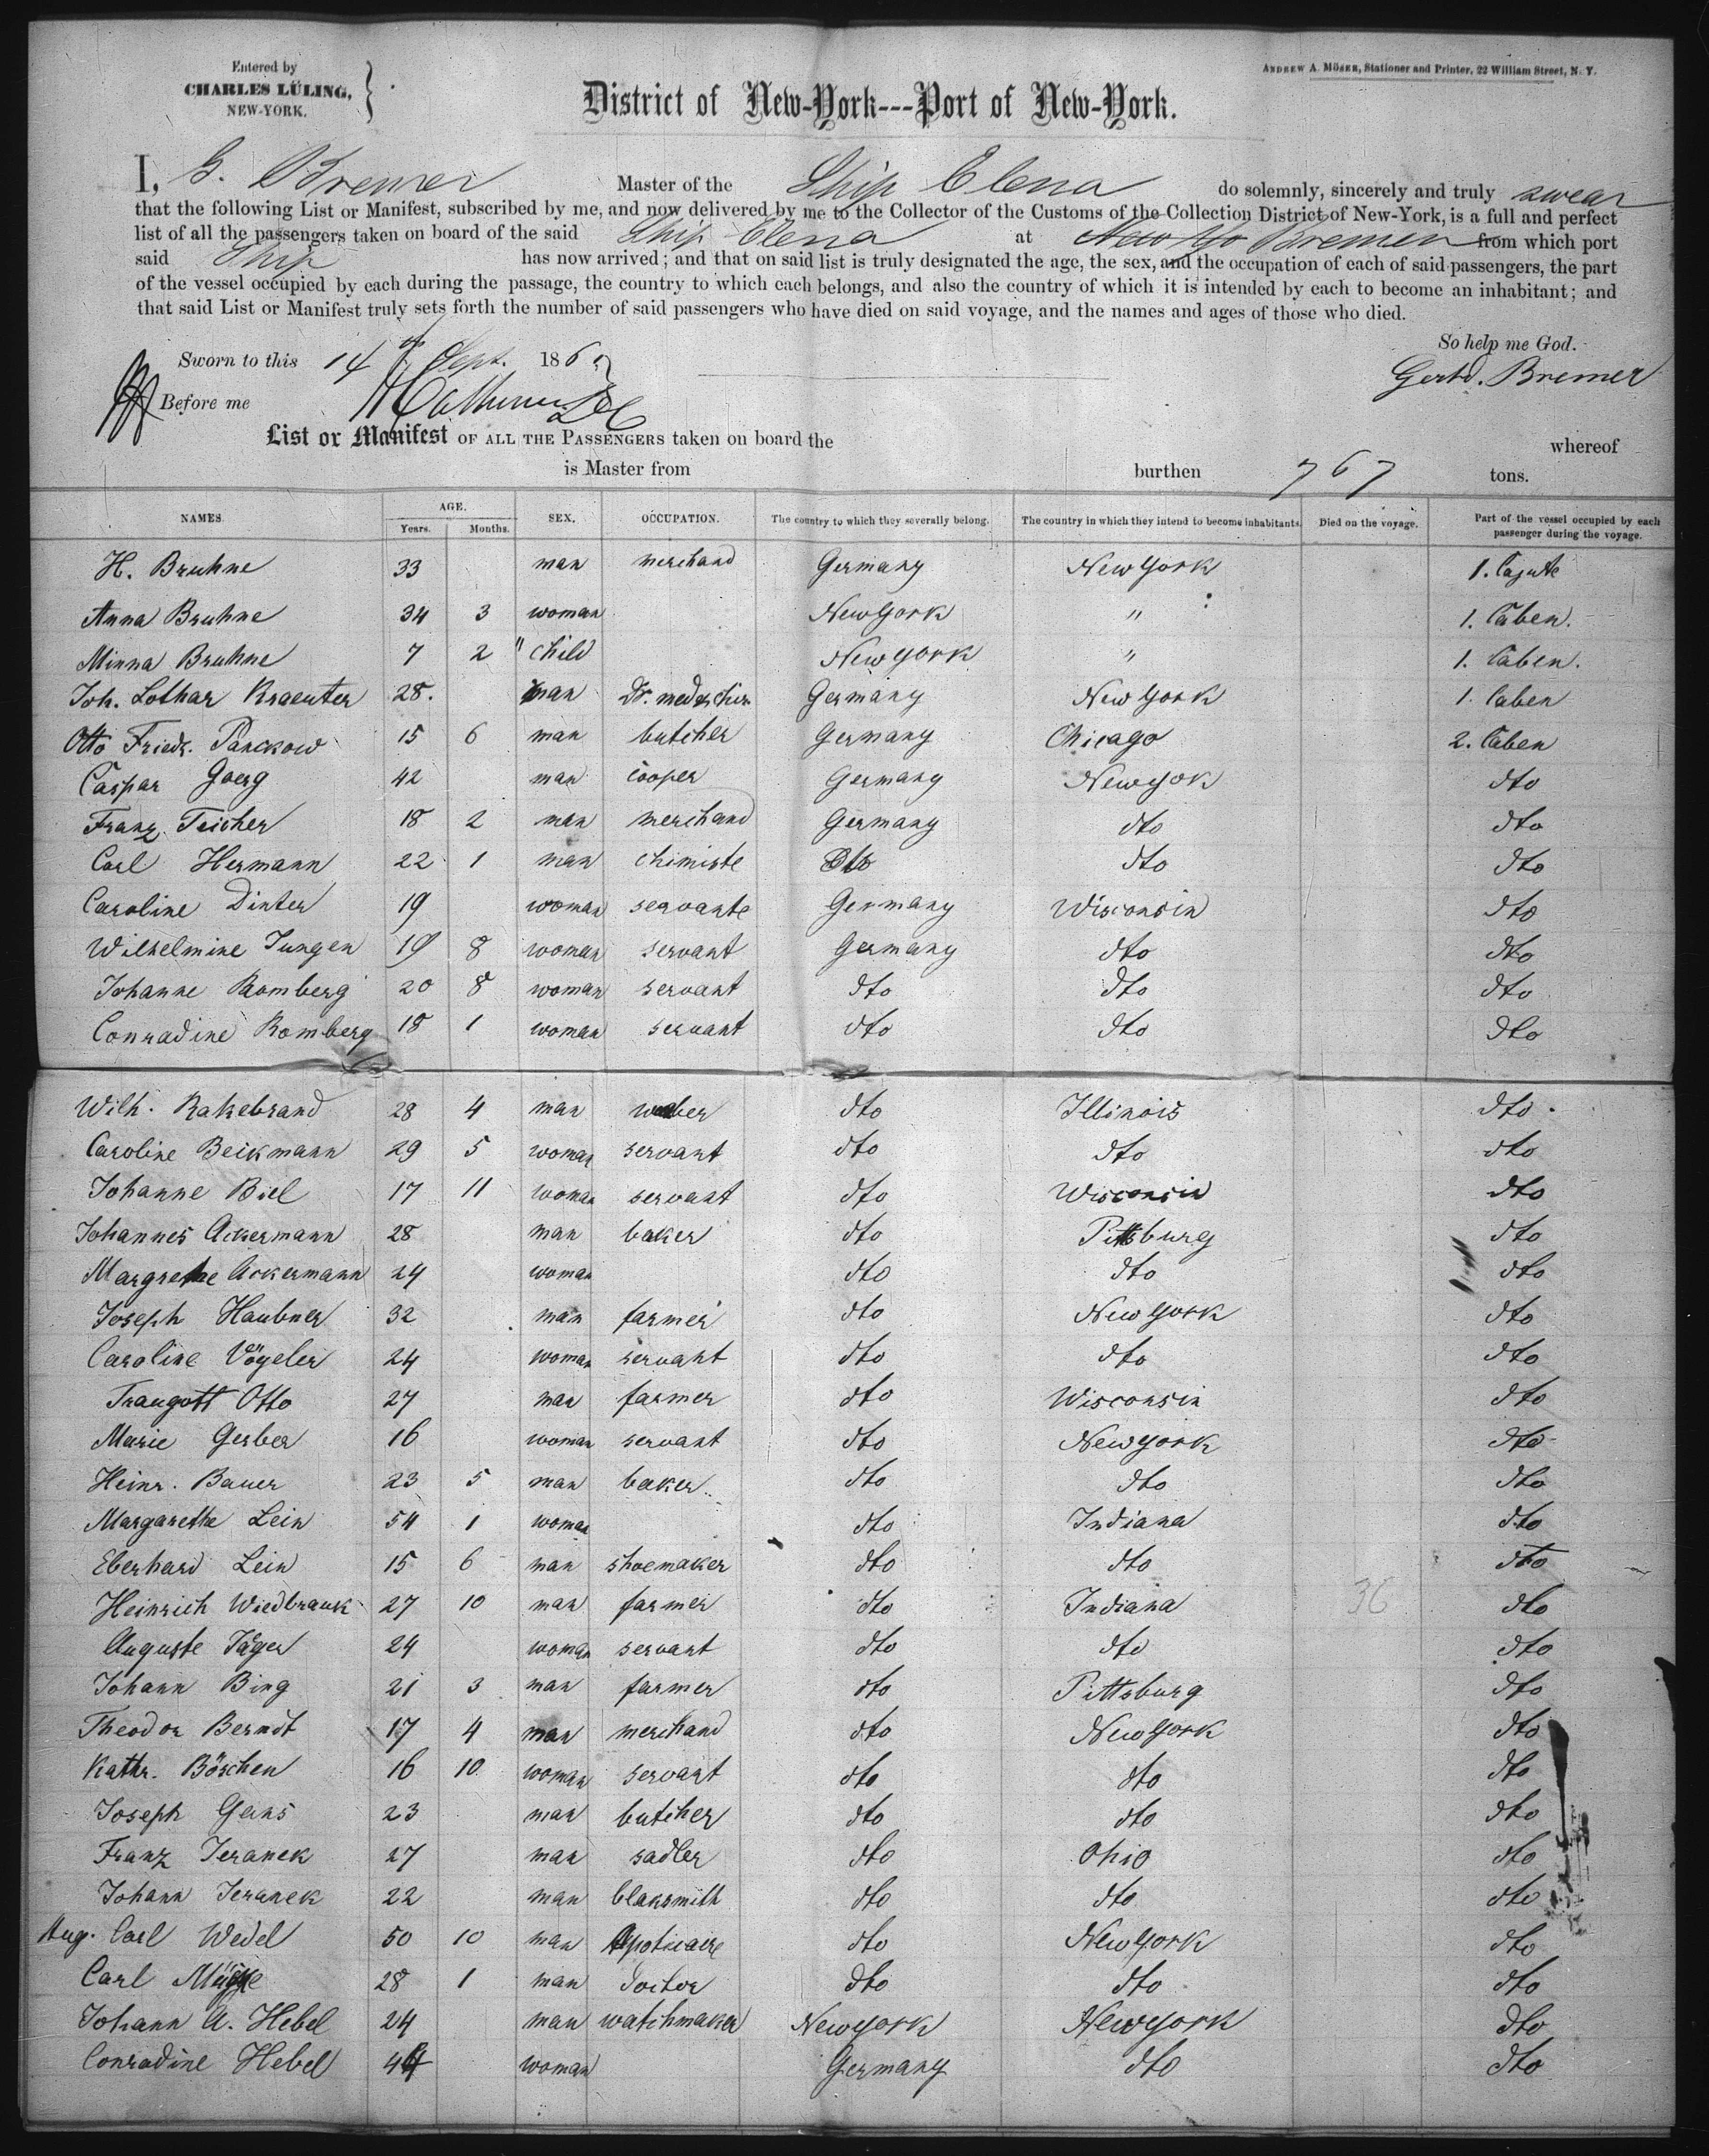 Entered by
CHARLES LÜLING,
NEW-YORK.
ANDREW A. MÖSER, Stationer and Printer, 22 William Street, N. Y.
District of New-York---Port of New-York.
I, G. Bremer Master of the Ship Elena do solemnly, sincerely and truly swear
that the following List or Manifest, subscribed by me, and now delivered by me to the Collector of the Customs of the Collection District of New-York, is a full and perfect
list of all the passengers taken on board of the said Ship Elena at Bremen from which port
said Ship has now arrived; and that on said list is truly designated the age, the sex, and the occupation of each of said passengers, the part
of the vessel occupied by each during the passage, the country to which each belongs, and also the country of which it is intended by each to become an inhabitant; and
that said List or Manifest truly sets forth the number of said passengers who have died on said voyage, and the names and ages of those who died.
So help me God.
Sworn to this 14th Sept. 186
Gerhd. Bremer
Before me
List or Manifest OF ALL THE PASSENGERS taken on board the whereof
is Master from burthen 767 tons.
NAMES. AGE. Years. Months. SEX. OCCUPATION. The country to which they severally belong. The country in which they intend to become inhabitants. Died on the voyage. Part of the vessel occupied by each passenger during the voyage.
H. Bruhne 33 man merchand Germany New York 1. Cajute
Anna Bruhne 34 3 woman New York " 1. Caben.
Minna Bruhne 7 2 " child New York " 1. Caben.
Joh. Lothar Kraeuter 28. man Dr. med. Germany New York 1. Caben
Otto Friedr. Panckow 15 6 man butcher Germany Chicago 2. Caben
Caspar Goerg 42 man cooper Germany New yok dto
Franz Teicher 18 2 man merchand Germany dto dto
Carl Hermann 22 1 man chimiste Dto dto dto
Caroline Dinter 19 woman servante Germany Wisconsin dto
Wilhelmine Jungen 19 8 woman servant Germany dto dto
Johanne Romberg 20 8 woman servant dto dto dto
Conradine Romberg 18 1 woman servant dto dto dto
Wilh. Rakebrand 28 4 man dto Illinois dto
Caroline Beickmann 29 5 woman servant dto dto dto
Johanne Biel 17 11 woman servant dto Wisconsin dto
Johannes Ackermann 28 man baker dto Pittsburg dto
Margrethe Ackermann 24 woman dto dto dto
Joseph Haubner 32 man farmer dto New York dto
Caroline Vögeler 24 woman servant dto dto dto
Traugott Otto 27 man farmer dto Wisconsin dto
Marie Gerber 16 woman servant dto New york dto
Heinr. Bauer 23 5 man baker. dto dto dto
Margarethe Lein 54 1 woman dto Indiana dto
Eberhard Lein 15 6 man shoemaker dto dto dto
Heinrich Wiedbrauk 27 10 man farmer dto Indiana 36 dto
Auguste Jäger 24 woman servant dto dto dto
Johann Bing 21 3 man farmer dto Pittsburg dto
Theodor Berndt 17 4 man merchand dto New York dto
Kathr. Böschen 16 10 woman servant dto dto dto
Joseph Gans 23 man butcher dto dto dto
Franz Jeranek 27 man sadler dto Ohio dto
Johann Jeranek 22 man blaksmith dto dto dto
Aug. Carl Wedel 50 10 man Apoticaire dto New York dto
Carl 28 1 man doctor dto dto dto
Johann A. Hebel 24 man watchmaker New york New york dto
Conradine Hebel 44 woman Germany dto dto